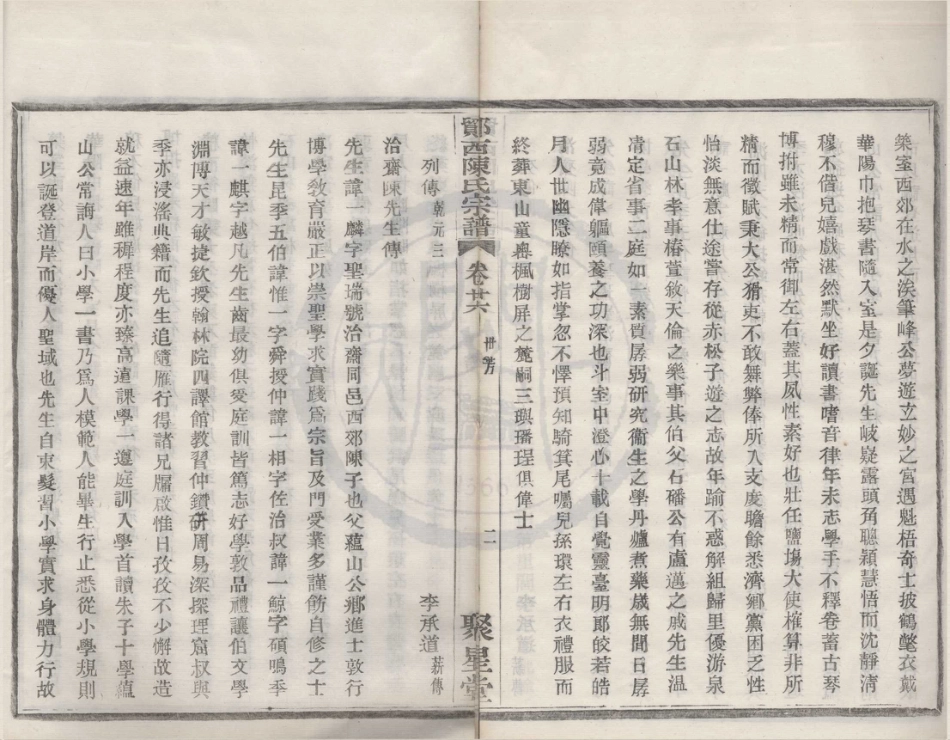 築室西郊在水之涘筆峰公夢遊立妙之宮遇魁梧奇士披鶴氅衣戴
華陽巾抱琴書隨入室是夕誕先生岐嶷露頭角聰穎慧悟而沈靜淸
穆不偕兒嬉戲湛然默坐好讀書嗜音律年未志學手不釋卷蓄古琴
博拊雖未精而常御左右蓋其夙性素好也壯任鹽塲大使榷算非所
精而徵賦秉大公猾吏不敢舞弊俸所入支度贍餘悉濟鄉黨困乏性
怡淡無意仕途嘗存從赤松子遊之志故年踰不惑解組歸里優游泉
石山林孝事椿萱敘天倫之樂事其伯父石磻公有盧邁之戚先生温
凊定省事二庭如一素質孱弱研究衞生之學丹爐煮藥歲無間日孱
弱竟成偉軀頤養之功深也斗室中澄心十載自覺靈臺明郎皎若皓
月人世幽隱瞭如指掌忽不懌預知騎箕尾囑兒孫環左右衣禮服而
終葬東山童粵楓樹屏之麓嗣三璵璠珵俱偉士
鄮西陳氏宗譜
卷廿六
世芳
二
聚星堂
列傳 乾元三
治齋陳先生傳
李承道 菥傳
先生諱一麟字聖瑞號治齋同邑西郊陳子也父蘊山公鄉進士敦行
博學敎育嚴正以崇聖學求實踐爲宗旨及門受業多謹飭自修之士
先生昆季五伯諱惟一字舜授仲諱一相字佐治叔諱一鯨字碩鳴季
諱一麒字越凡先生齒最幼俱愛庭訓皆篤志好學敦品禮讓伯文學
淵博天才敏捷欽授翰林院四譯館教習仲鑽研周易深探理窟叔與
季亦浸滛典籍而先生追隨雁行得諸兄牖啟惟日孜孜不少懈故造
就益速年雖穉程度亦臻高遠課學一遵庭訓入學首讀朱子小學蘊
山公常誨人曰小學一書乃爲人模範人能畢生行止悉從小學規則
可以誕登道岸而優入聖域也先生自束髮習小學實求身體力行故